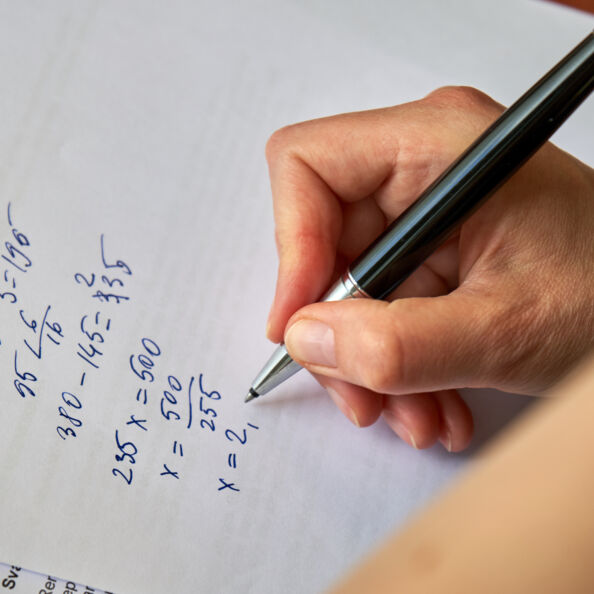 5=195
95 6
16
380-145=235
235x=500
x=500
255
x=2,
Sva
Rer
ep